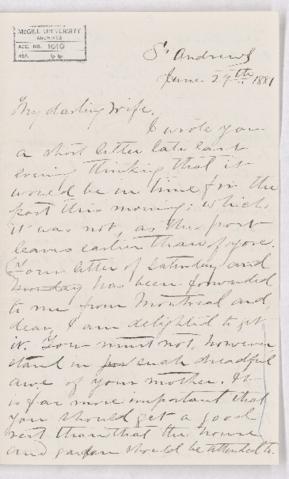 McGILL UNIVERSITY
ARCHIVES
ACC. NO. 1010
REF.
St Andrews
June 27th 1881
My darling Wife,
I wrote you
a short letter late last
evening thinking that it
would be in time for the
post this morning; which
it was not as the post
leaves earlier than of yore.
Your letter of Saturday and
Sunday has been forwarded
to me from Montreal and
dear, I am delighted to get
it. You must not, however
stand in such dreadful
awe of your mother. It
is far more important that
you should get a good
rest than that the house
and garden should be attended to.